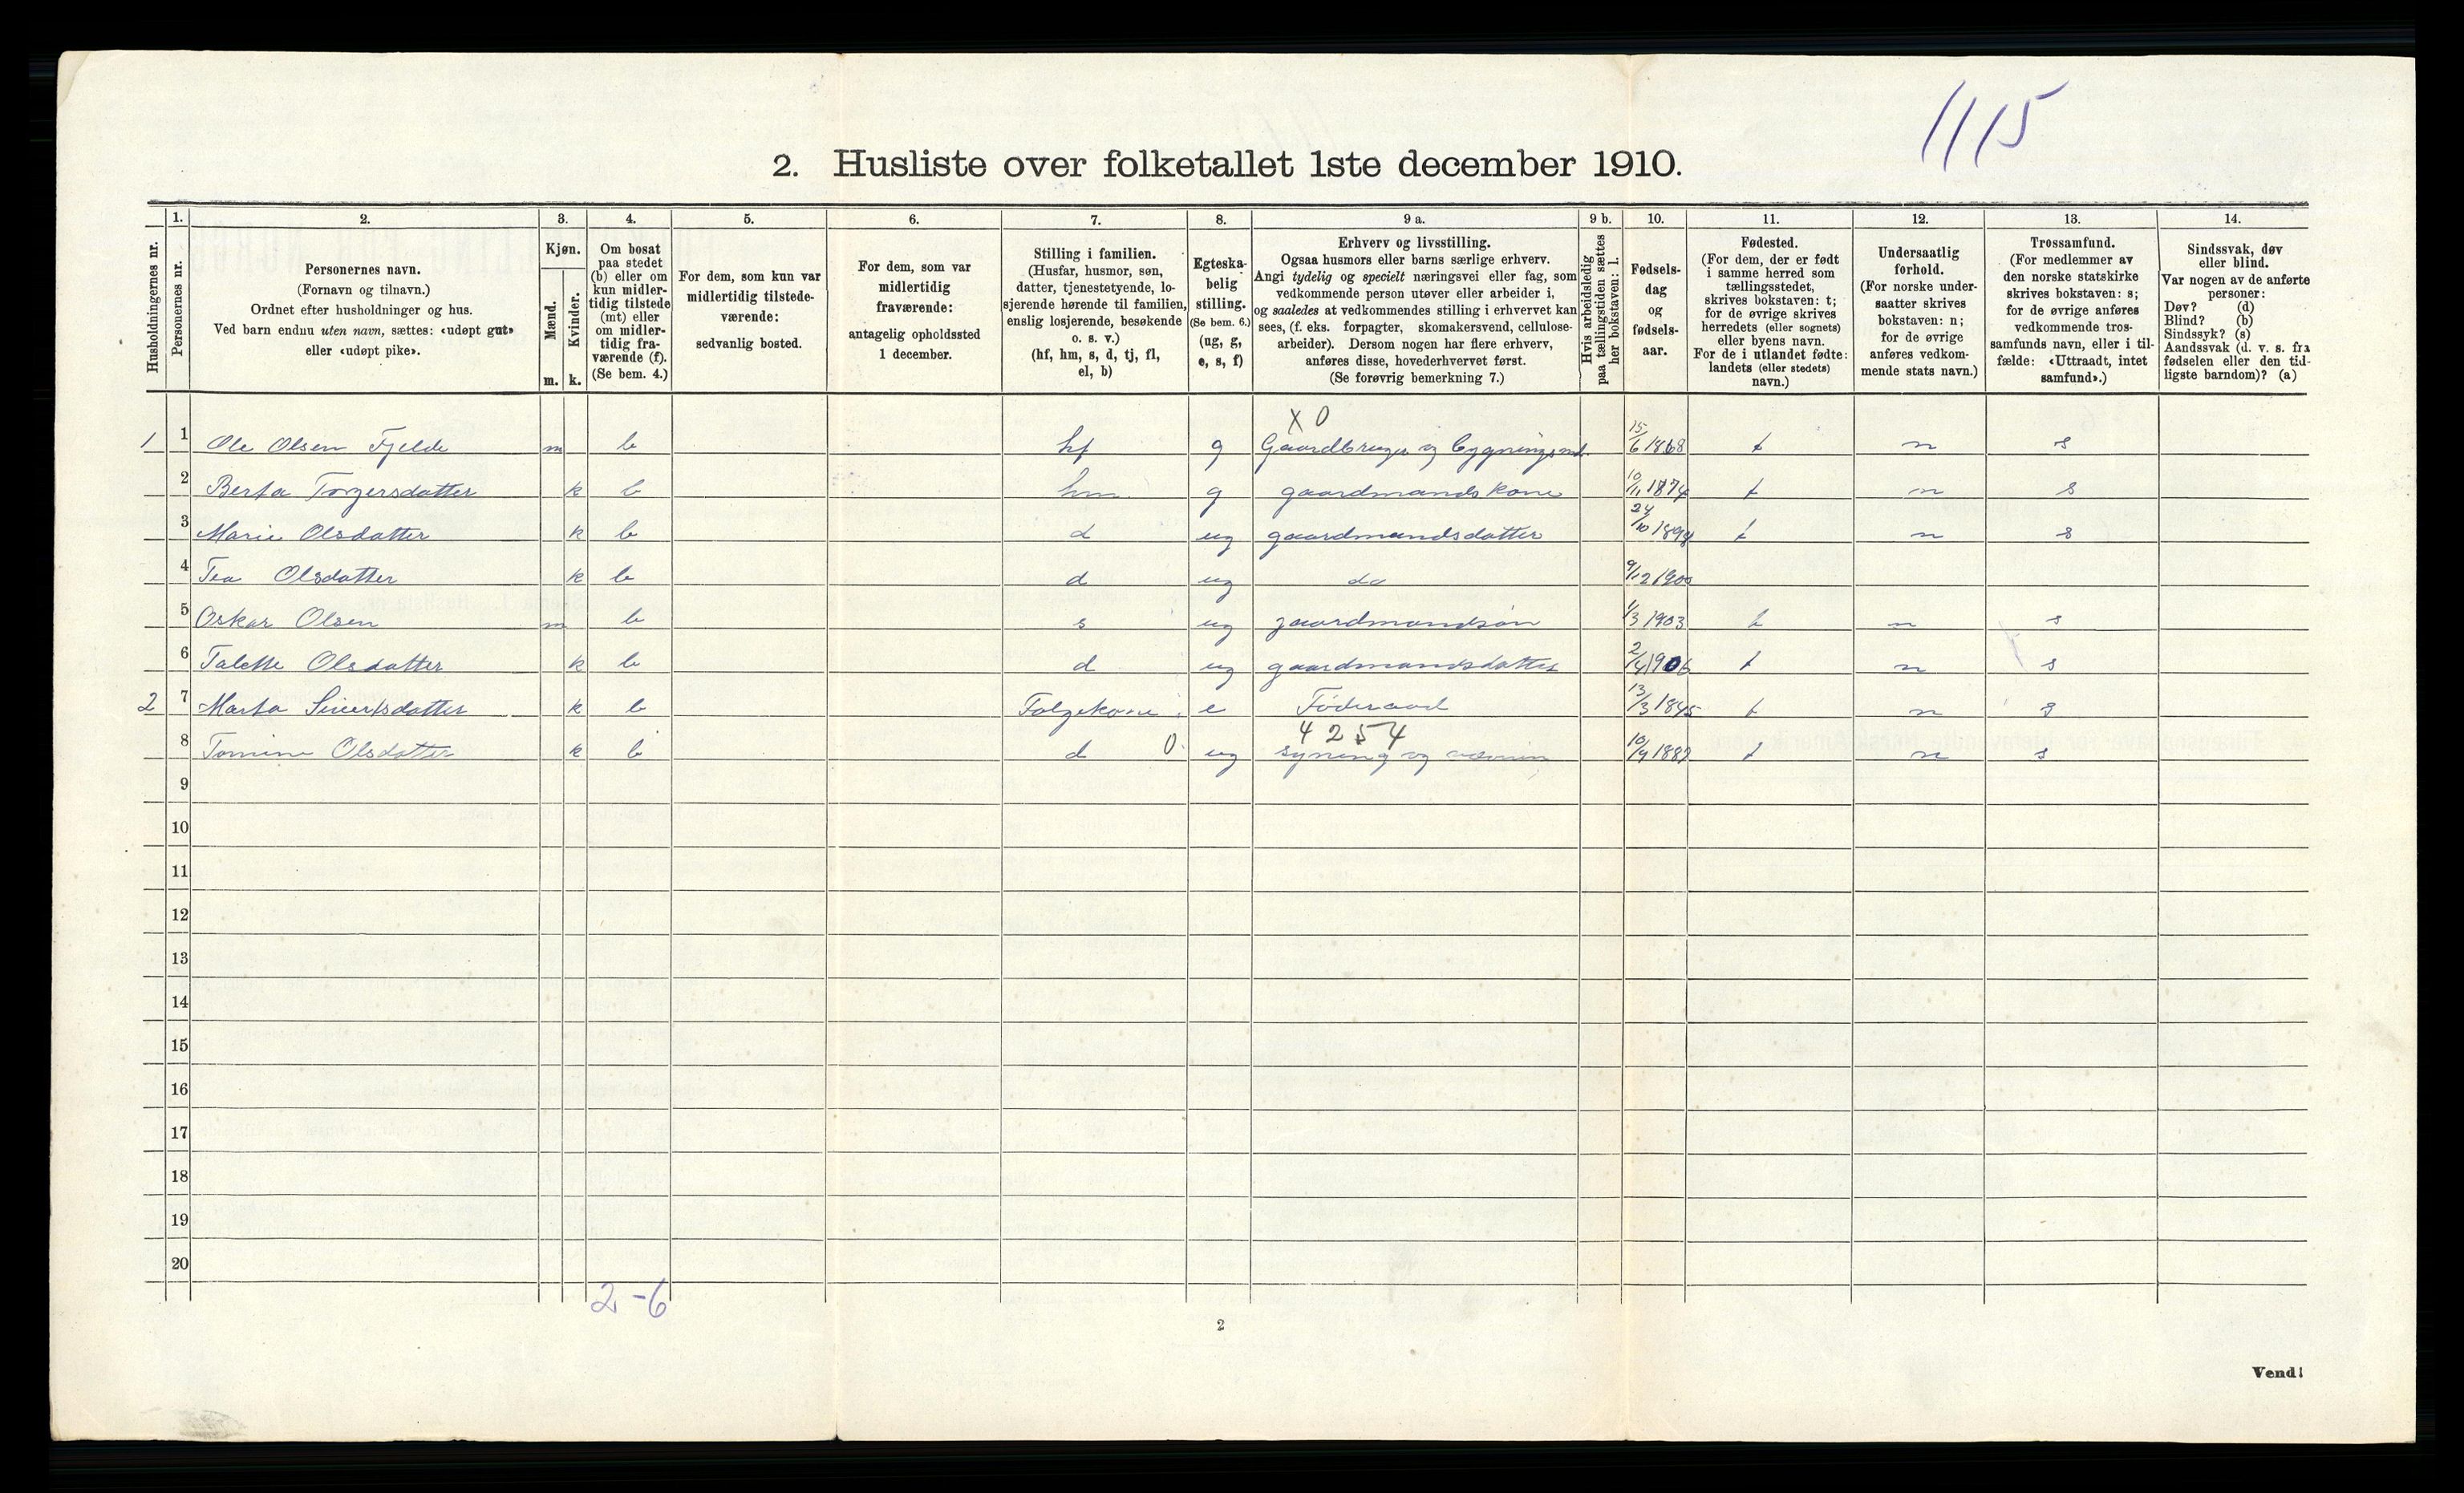 1115
2. Husliste over folketallet 1ste december 1910.
Husholdningernes nr.
1. Personernes nr.
2. Personernes navn.
(Fornavn og tilnavn.)
Ordnet efter husholdninger og hus.
Ved barn endnu uten navn, sættes: «udøpt gut»
eller «udøpt pike».
3. Kjøn.
Mænd. m.
Kvinder. k.
4. Om bosat
paa stedet
(b) eller om
kun midler-
tidig tilstede
(mt) eller
om midler-
tidig fra-
værende (f).
(Se bem. 4.)
5. For dem, som kun var
midlertidig tilstede-
værende:
sedvanlig bosted.
6. For dem, som var
midlertidig
fraværende:
antagelig opholdssted
1 december.
7. Stilling i familien.
(Husfar, husmor, søn,
datter, tjenestetyende, lo-
sjerende hørende til familien,
enslig losjerende, besøkende
o. s. v.)
(hf, hm, s, d, tj, fl,
el, b)
8. Egteska-
belig
stilling.
(Se bem. 6.)
(ug, g,
e, s, f)
9 a. Erhverv og livsstilling.
Ogsaa husmors eller barns særlige erhverv.
Angi tydelig og specielt næringsvei eller fag, som
vedkommende person utøver eller arbeider i,
og saaledes at vedkommendes stilling i erhvervet kan
sees, (f. eks. forpagter, skomakersvend, cellulose-
arbeider). Dersom nogen har flere erhverv,
anføres disse, hovederhvervet først.
(Se forøvrig bemerkning 7.)
9 b. Hvis arbeidsledig
paa tællingstiden sættes
her bokstaven: l.
10. Fødsels-
dag
og
fødsels-
aar.
11. Fødested.
(For dem, der er født
i samme herred som
tællingsstedet,
skrives bokstaven: t;
for de øvrige skrives
herredets (eller sognets)
eller byens navn.
For de i utlandet fødte:
landets (eller stedets)
navn.)
12. Undersaatlig
forhold.
(For norske under-
saatter skrives
bokstaven: n;
for de øvrige
anføres vedkom-
mende stats navn.)
13. Trossamfund.
(For medlemmer av
den norske statskirke
skrives bokstaven: s;
for de øvrige anføres
vedkommende tros-
samfunds navn, eller i til-
fælde: «Uttraadt, intet
samfund».)
14. Sindssvak, døv
eller blind.
Var nogen av de anførte
personer:
Døv? (d)
Blind? (b)
Sindssyk? (s)
Aandssvak (d. v. s. fra
fødselen eller den tid-
ligste barndom)? (a)
X 0
1 1 Ole Olsen Fjelde m b hf g Gaardbruger og bygningsmd. 15/6 1868 t n s
2 Berta Torgersdatter k b hm g gaardmandskone 10/11 1874 t n s
3 Marie Olsdatter k b d ug gaardmandsdatter 24/10 1898 t n s
4 Tea Olsdatter k b d ug do 9/12 1900
5 Oskar Olsen m b s ug gaardmandsøn 1/3 1903 t n s
6 Talette Olsdatter k b d ug gaardmandsdatter 2/4 1906 t n s
2 7 Marta Sivertsdatter k b Folgekone e Føderaad 13/3 1845 t n s
4254
8 Tomine Olsdatter k b d 0 ug syning og 10/9 1882 t n s
9
10
11
12
13
14
15
16
17
18
19
20
2-6
2
Vend!